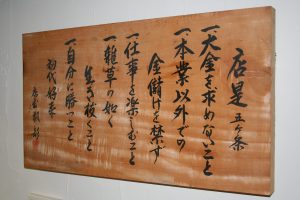 店是 五ヶ条
一大金を求めないこと
一本業以外での
金儲けを禁ず
一仕事を楽しむこと
一雑草の如く
生き抜くこと
一自分に勝つこと
初代 好永